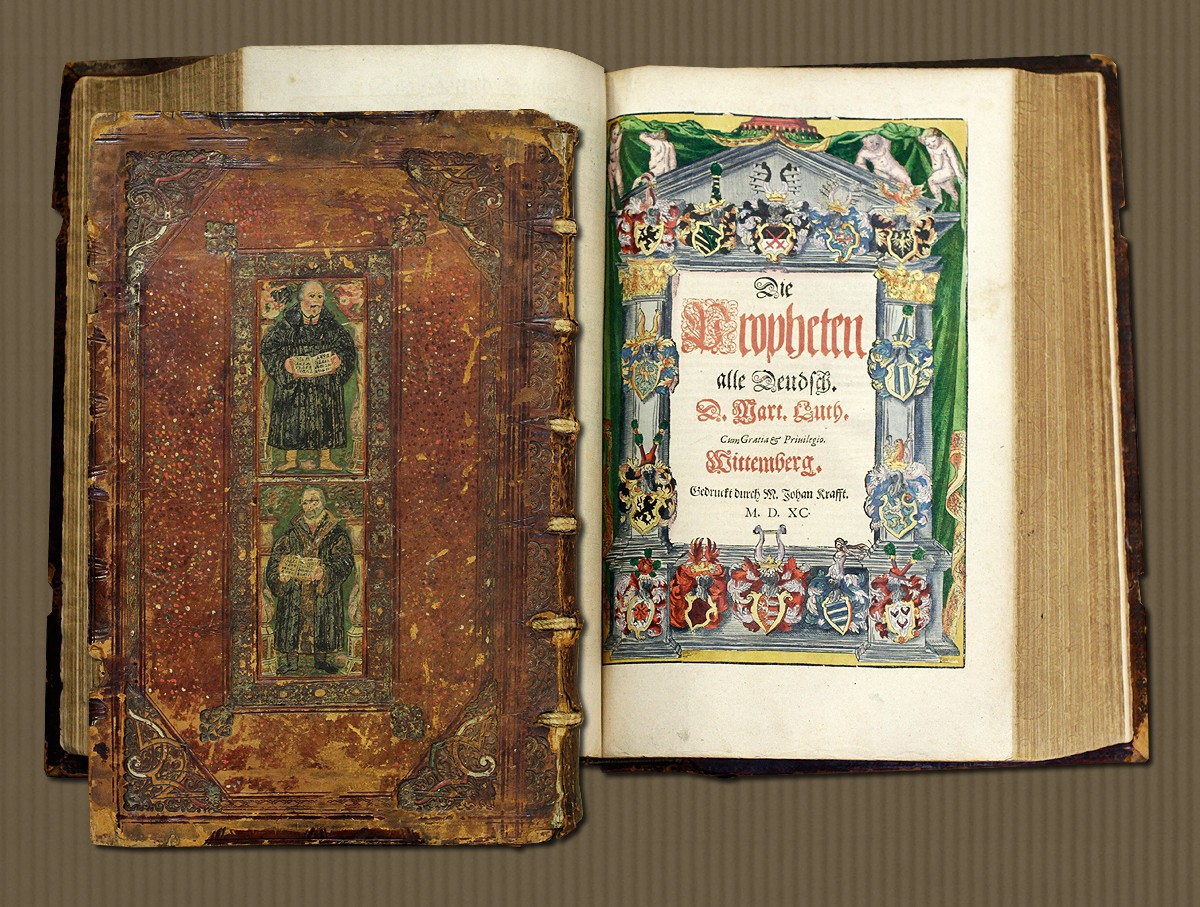 Die
Propheten
alle Deudsch.
D. Mart. Luth.
Cum Gratia & Priuilegio.
Wittemberg.
Gedruckt durch M. Johan Krafft.
M. D. XC.